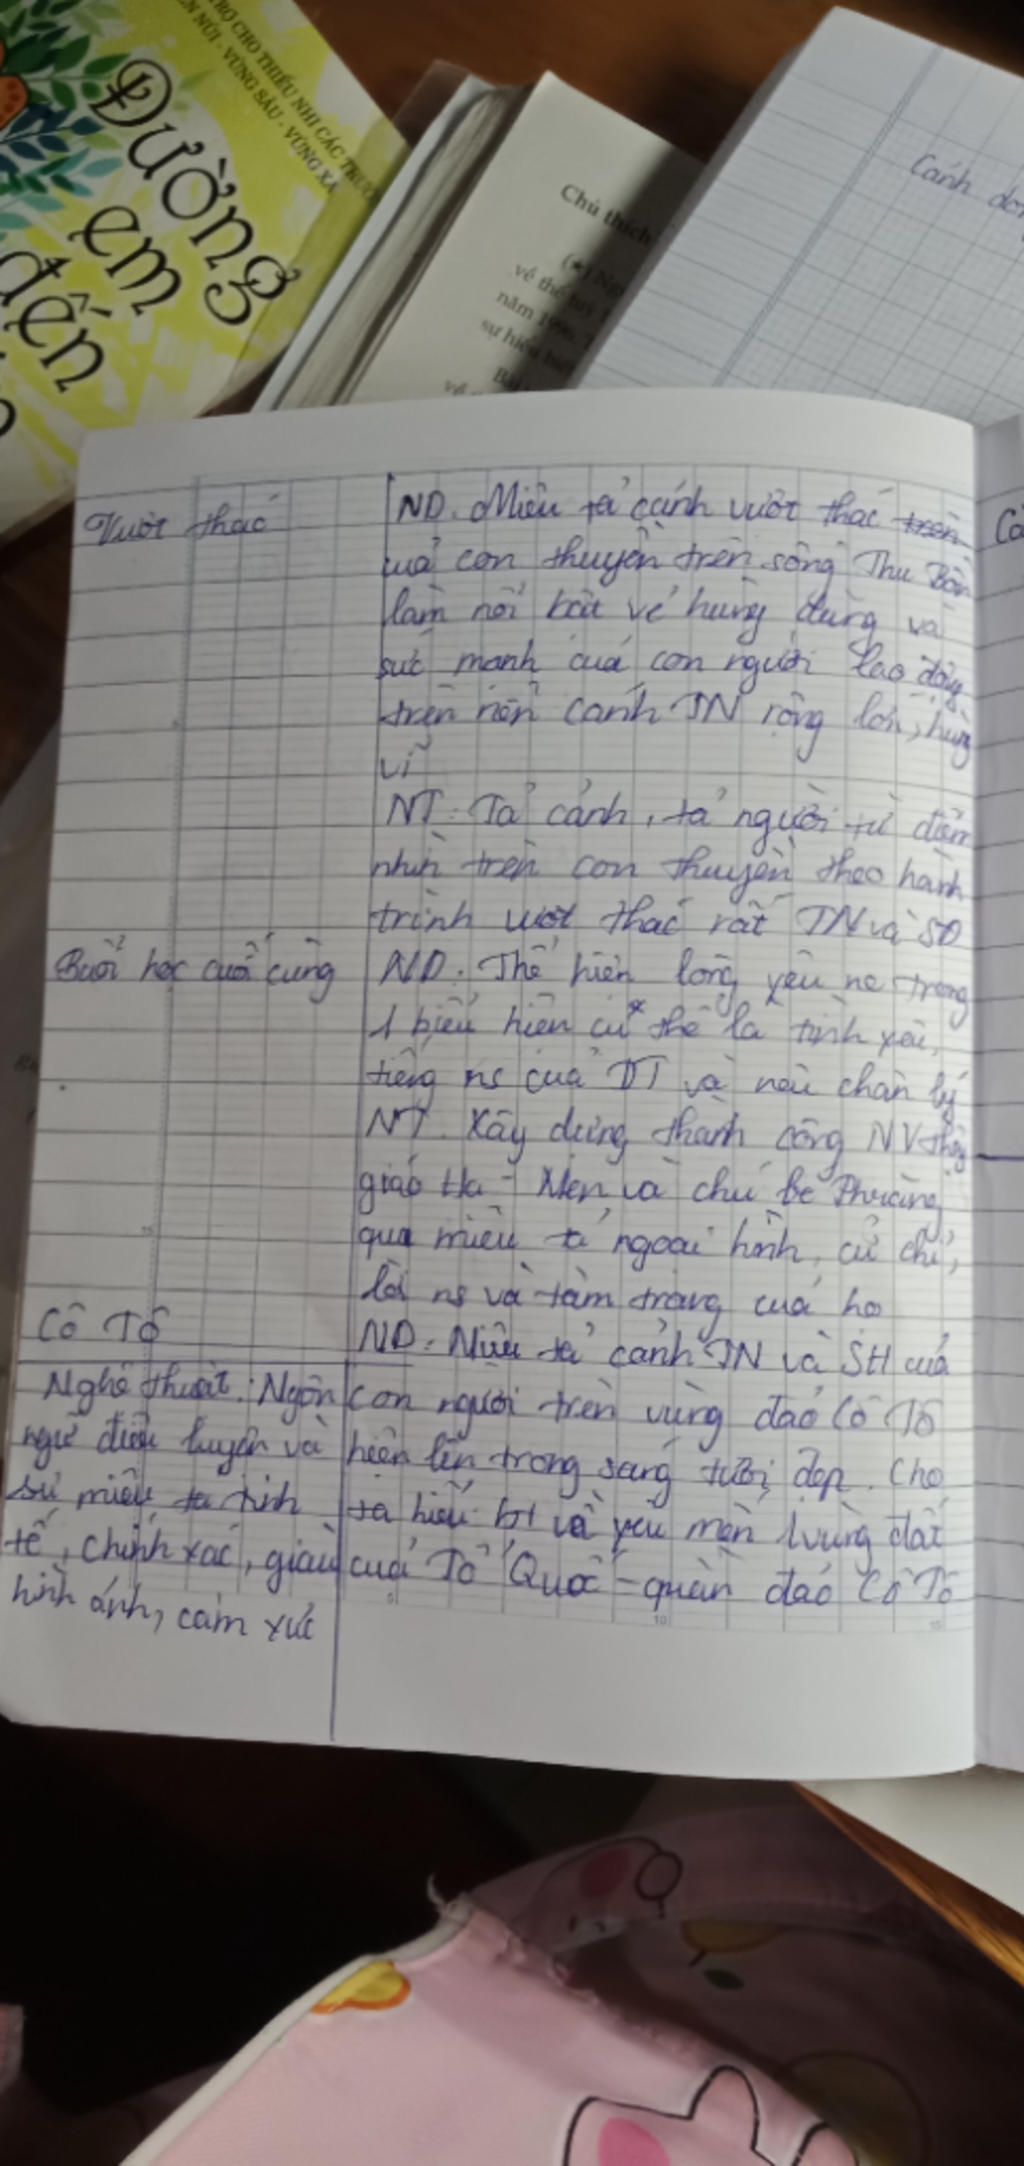 TRỢ CHO THIẾU NHI CÁC TRƯỜ
NÚI - VÙNG SÂU - VÙNG XA
Đường
em
đến
Chú thích
(*)
về th
năm 1996.
sự hiểu biết
Bài
về
Cánh
Vượt thác
ND. Miêu tả cảnh vượt thác trên
của con thuyền trên sông Thu Bồn
làm nổi bật vẻ hùng dũng và
sức mạnh của con người lao động
trên nền cảnh TN rộng lớn, hùng
vĩ
NT: Tả cảnh, tả người từ điểm
nhìn trên con thuyền theo hành
trình vượt thác rất TN và SĐ
Buổi học cuối cùng
ND: Thể hiện lòng yêu nc trong
1 biểu hiện cụ thể là tình yêu
tiếng ns của DT và nêu chân lý
NT. Xây dựng thành công NV thầy
giáo Ha - Men và chú bé Phrăng
qua miêu tả ngoại hình, cử chỉ,
lời ns và tâm trạng của họ
Cô Tô
ND: Miêu tả cảnh TN và SH của
con người trên vùng đảo Cô Tô
hiện lên trong sáng tươi đẹp. Cho
ta hiểu bt và yêu mến 1 vùng đất
của Tổ Quốc - quần đảo Cô Tô
Nghệ thuật: Ngôn
ngữ điêu luyện và
sự miêu tả tinh
tế, chính xác, giàu
hình ảnh, cảm xúc